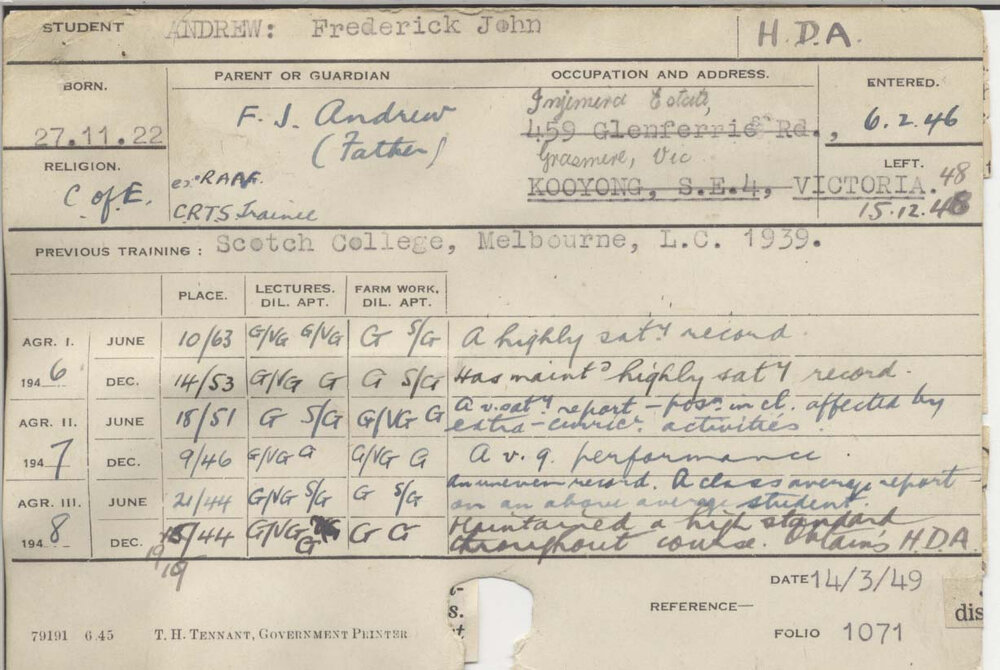 STUDENT ANDREW: Frederick John H.D.A.
BORN. PARENT OR GUARDIAN OCCUPATION AND ADDRESS. ENTERED.
27.11.22 F. J. Andrew Injemira Estate, 6.2.46
(Father) 459 Glenferrie Rd.,
RELIGION. Grasmere, Vic LEFT.
C of E. ex RAAF. KOOYONG, S.E.4, VICTORIA. 48
CRTS Trainee 15.12.48
PREVIOUS TRAINING: Scotch College, Melbourne, L.C. 1939.
PLACE. LECTURES. DIL. APT. FARM WORK. DIL. APT.
AGR. I. JUNE 10/63 G/VG G/VG G S/G A highly saty record.
1946 DEC. 14/53 G/VG G G S/G Has maintd highly saty record.
AGR. II. JUNE 18/51 G S/G G/VG G A v. saty report - posn in cl. affected by
extra-curricr activities.
1947 DEC. 9/46 G/VG G G/VG G A v. g. performance.
AGR. III. JUNE 21/44 G/VG S/G G S/G An uneven record. A class average report
on an above average student
1948 DEC. /44 G/VG G G G Maintained a high standard
throughout course. Obtains H.D.A.
19/19
DATE 14/3/49
REFERENCE—
FOLIO 1071
79191 6.45 T. H. TENNANT, GOVERNMENT PRINTER
s.
dis